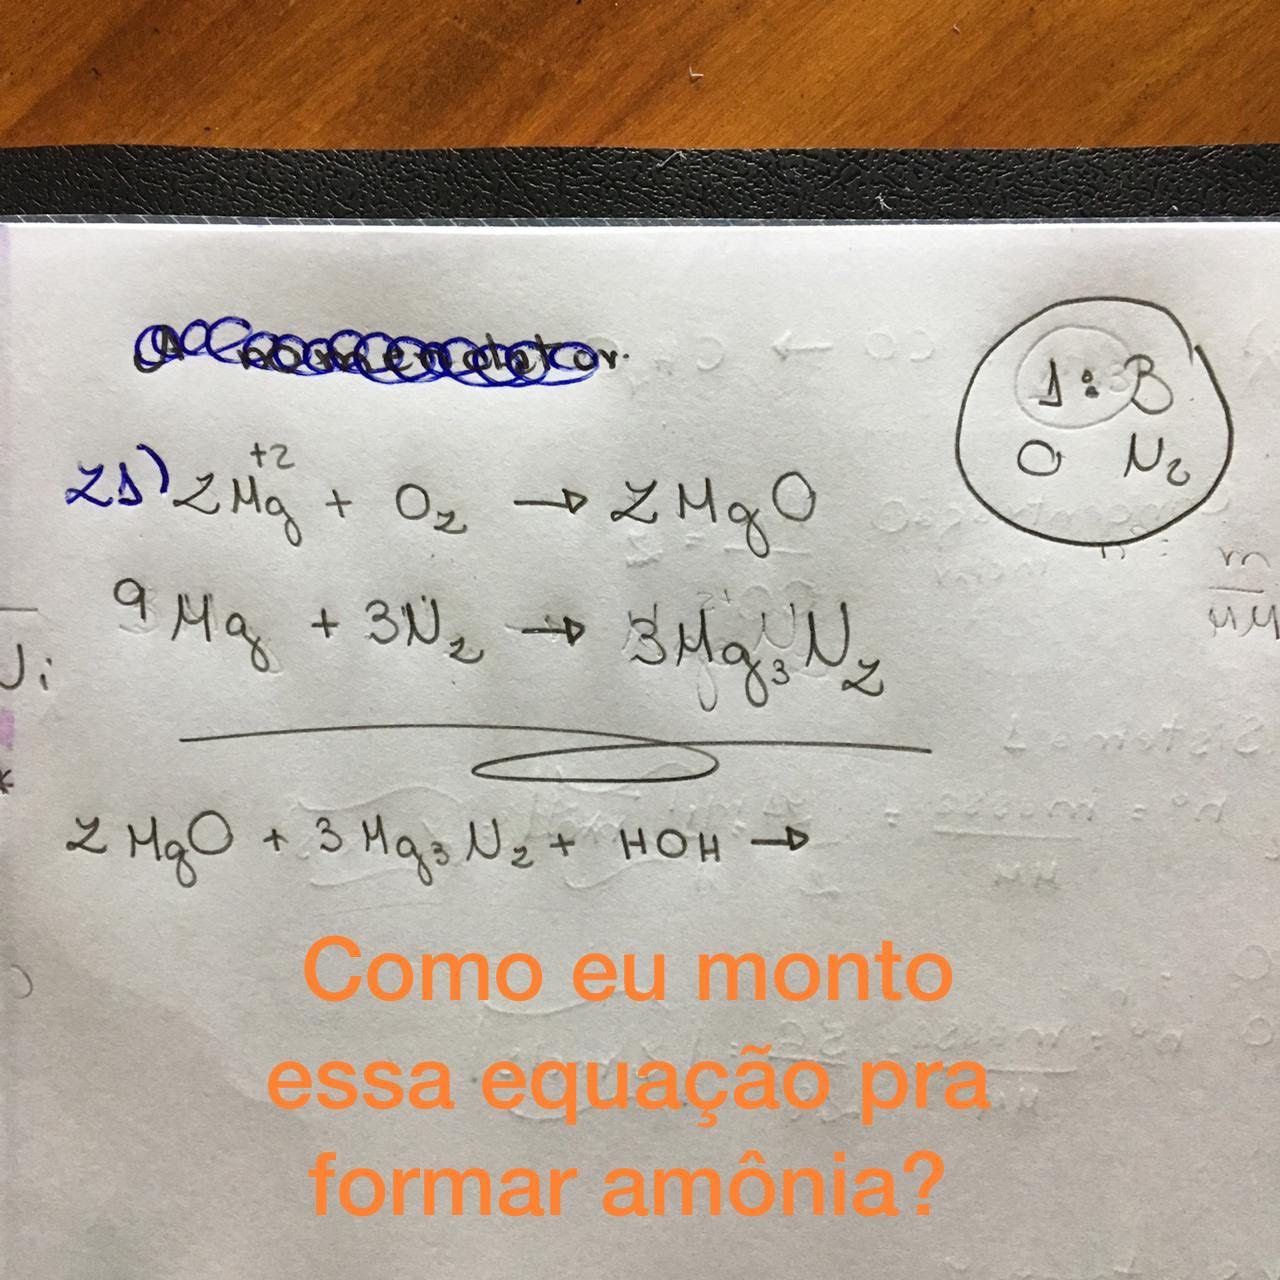 21) 2Mg⁺² + O₂ → 2MgO
1:3
O N₂
9Mg + 3N₂ → 3Mg₃N₂
2MgO + 3Mg₃N₂ + HOH →
Como eu monto
essa equação pra
formar amônia?